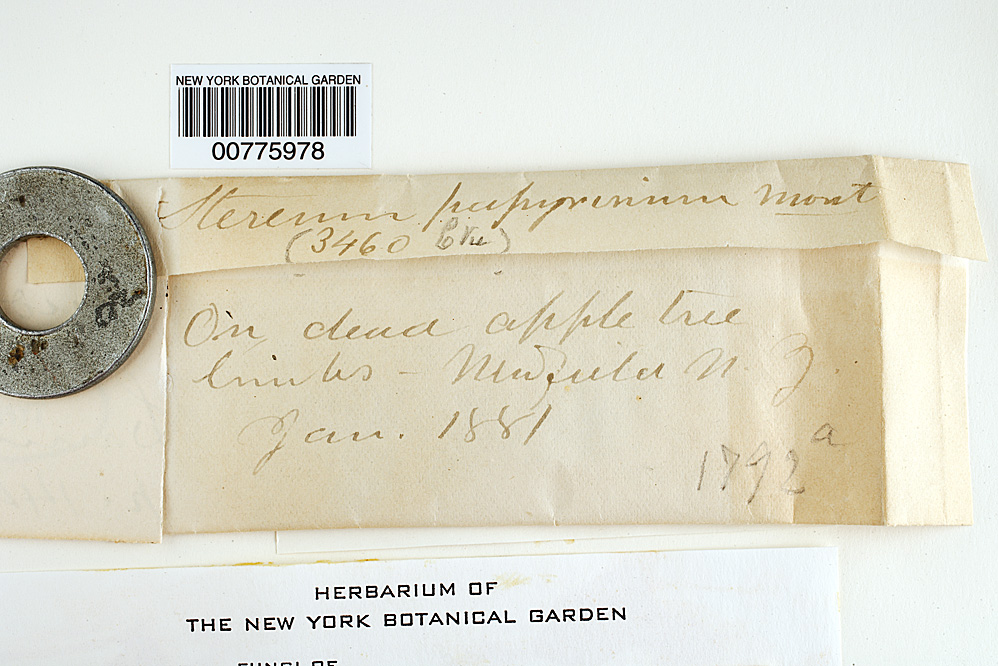 NEW YORK BOTANICAL GARDEN
00775978
Stereum papyrinium Mont
(3460 )
On dead apple tree
limbs - Newfield N. J.
Jan. 1881
1792 a
HERBARIUM OF
THE NEW YORK BOTANICAL GARDEN
FUNGI OF